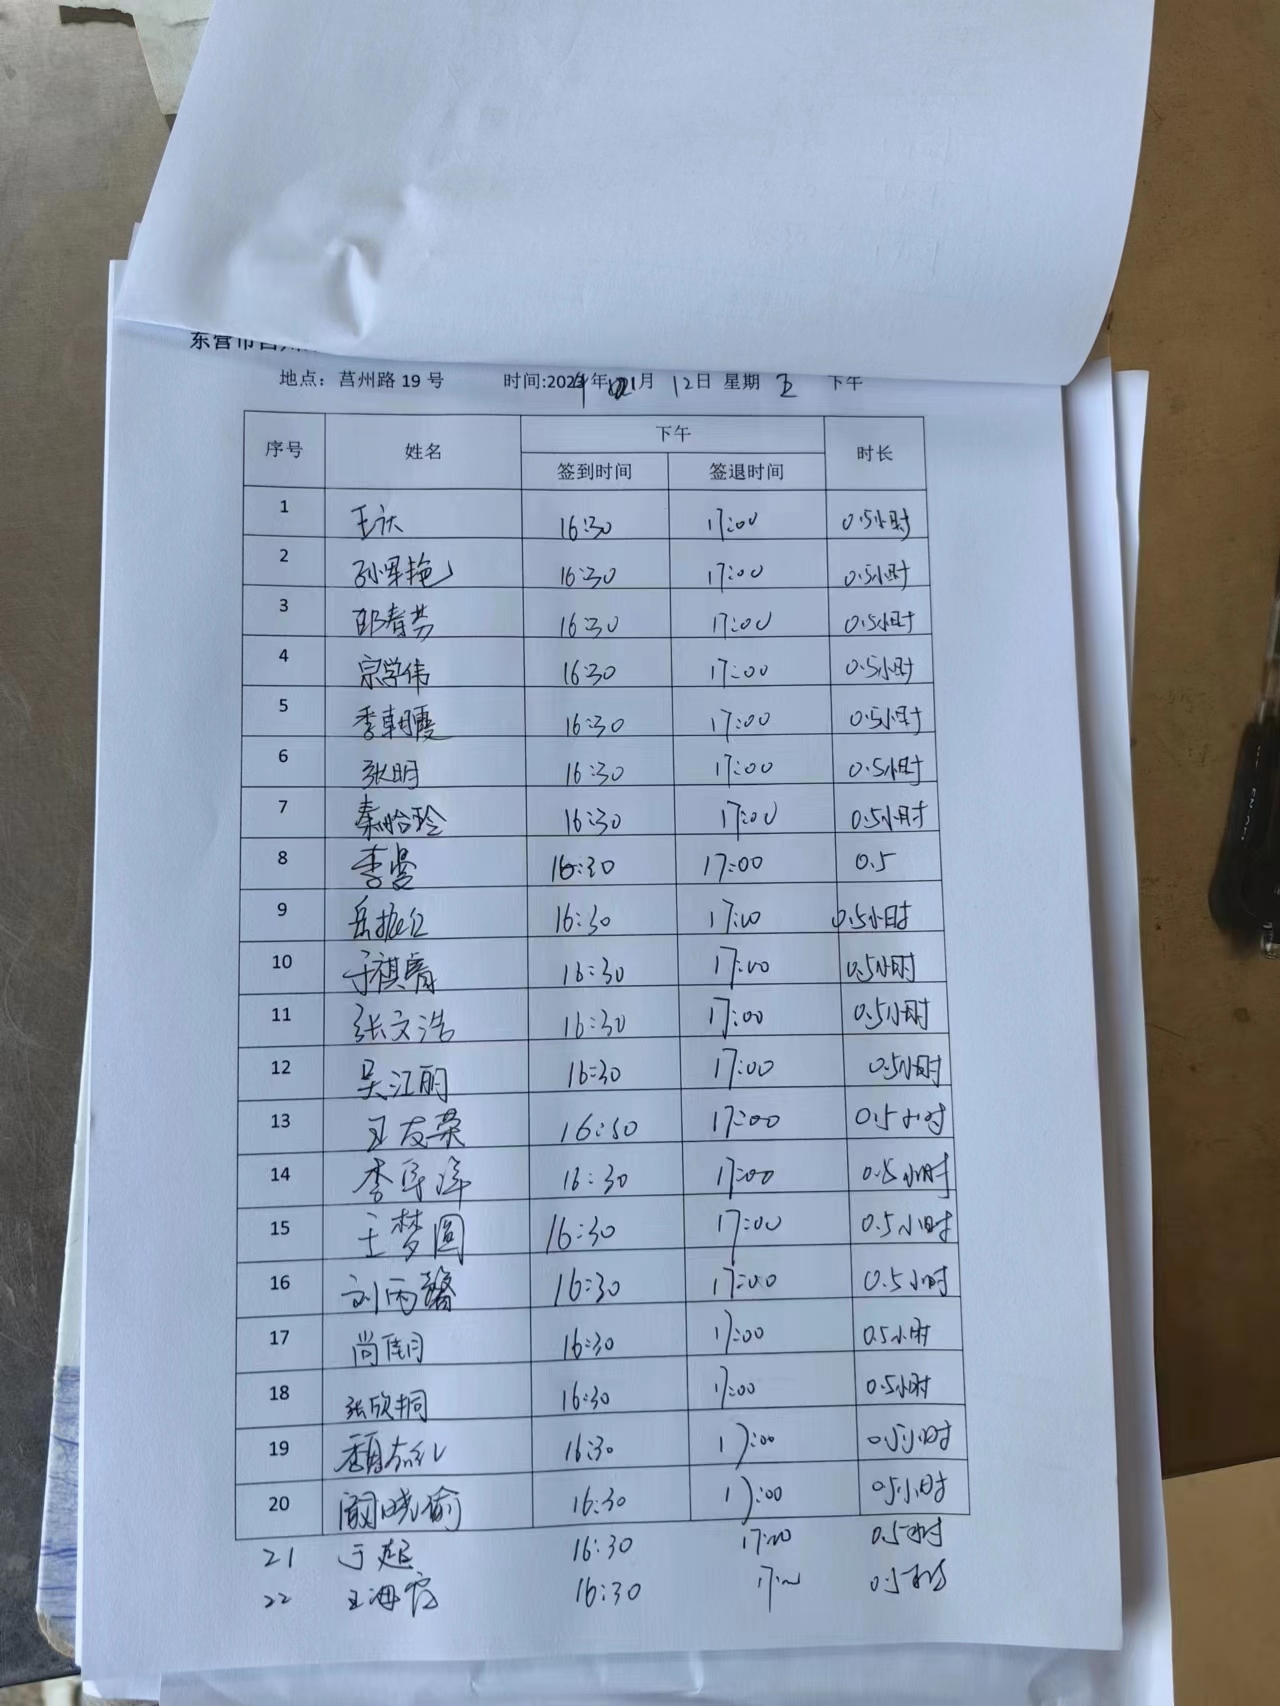 东营市
地点：莒州路 19 号 时间:2024年01月 12日 星期 五 下午
序号 姓名 下午 时长
签到时间 签退时间
1 王沃 16:30 17:00 0.5小时
2 孙军艳 16:30 17:00 0.5小时
3 邵春芳 16:30 17:00 0.5小时
4 宗学伟 16:30 17:00 0.5小时
5 李朝霞 16:30 17:00 0.5小时
6 张明 16:30 17:00 0.5小时
7 秦哈玲 16:30 17:00 0.5小时
8 李曼 16:30 17:00 0.5
9 岳振江 16:30 17:00 0.5小时
10 于祺睿 16:30 17:00 0.5小时
11 张文浩 16:30 17:00 0.5小时
12 吴江丽 16:30 17:00 0.5小时
13 王友荣 16:30 17:00 0.5小时
14 李 16:30 17:00 0.5小时
15 王梦圆 16:30 17:00 0.5小时
16 刘丙馨 16:30 17:00 0.5小时
17 尚佳玥 16:30 17:00 0.5小时
18 张欣桐 16:30 17:00 0.5小时
19 16:30 17:00 0.5小时
20 阚晓愉 16:30 17:00 0.5小时
21 于超 16:30 17:00 0.5小时
22 王海霞 16:30 17:00 0.5小时